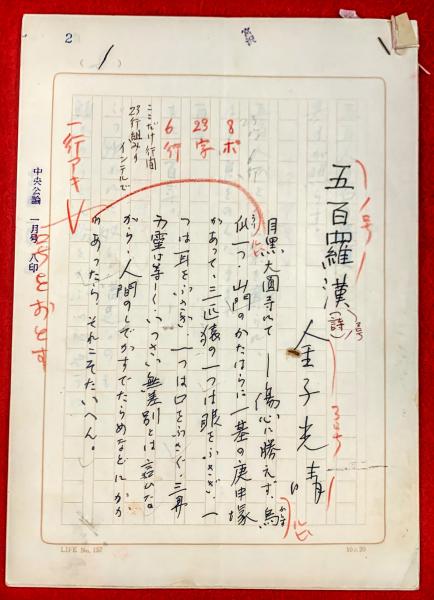 2
1
五百羅漢(詩)
金子光晴
目黒大圓寺にて ― 傷心に勝えず、烏
一つ。山門のかたはらに一基の庚申塚
があって、三匹猿の一つは眼をふさぎ、一
つは耳をふさぎ、一つは口をふさぐ。三界
万霊は等しく、いっさい無差別とは言ひな
がら、人間のしでかすでたらめなどにかか
りあったら、それこそたいへん。
8ポ
23字
6行
ここだけ行間
23行組みの
インテルで
一行アキ
中央公論 一月号 八印
をおとす
LIFE No. 157
10×20